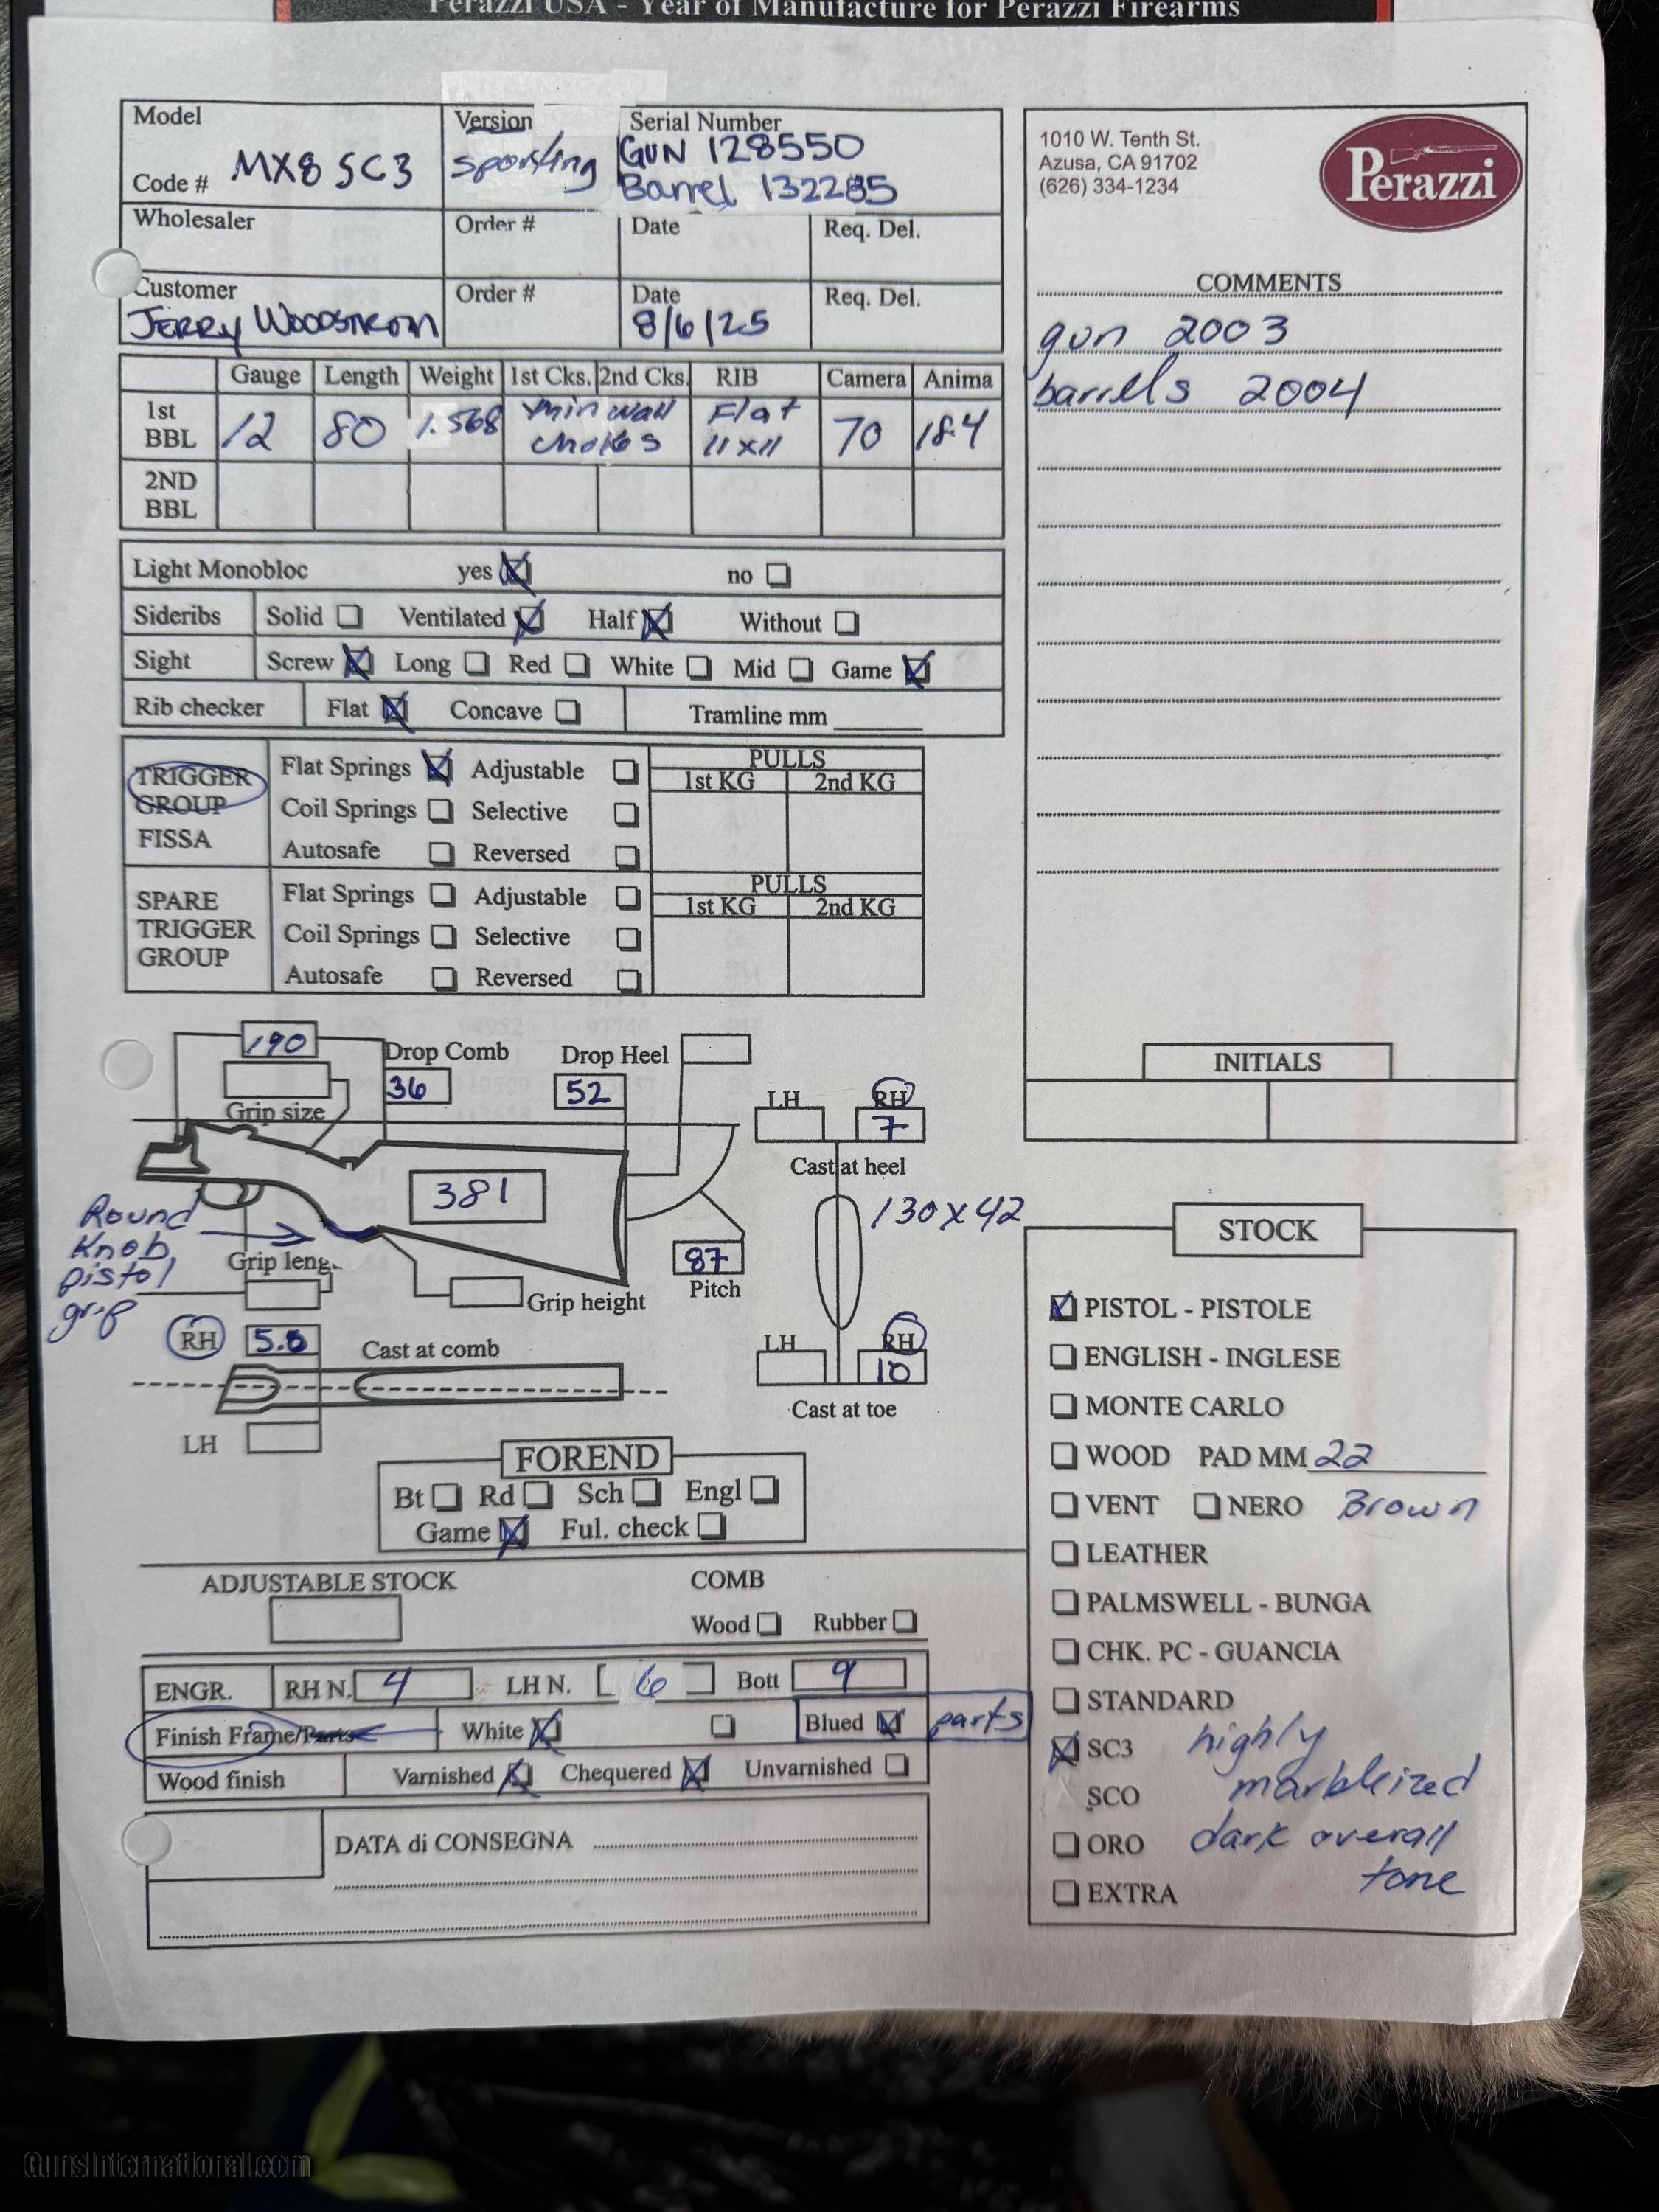 Perazzi USA - Year of Manufacture for Perazzi Firearms
Model
Code # MX8 SC3
Version
sporting
Serial Number
GUN 128550
Barrel 132285
Wholesaler
Order #
Date
Req. Del.
Customer
JERRY WOODSTROM
Order #
Date
8/6/25
Req. Del.
Gauge Length Weight 1st Cks. 2nd Cks. RIB Camera Anima
1st BBL 12 80 1.568 Thin wall chokes Flat 11x11 70 18.4
2ND BBL
Light Monobloc yes no
Sideribs Solid Ventilated Half Without
Sight Screw Long Red White Mid Game
Rib checker Flat Concave Tramline mm
TRIGGER GROUP
FISSA
Flat Springs Adjustable
Coil Springs Selective
Autosafe Reversed
PULLS
1st KG 2nd KG
SPARE TRIGGER GROUP
Flat Springs Adjustable
Coil Springs Selective
Autosafe Reversed
PULLS
1st KG 2nd KG
190
Grip size
Drop Comb
36
Drop Heel
52
LH RH
7
Cast at heel
381
130 x 42
Round
Knob
pistol
grip
Grip leng
Grip height
87
Pitch
RH 5.8
Cast at comb
LH
LH RH
10
Cast at toe
FOREND
Bt Rd Sch Engl
Game Ful. check
ADJUSTABLE STOCK
COMB
Wood Rubber
ENGR. RH N. 4 LH N. 6 Bott 9
Finish Frame/Parts White Blued parts
Wood finish Varnished Chequered Unvarnished
DATA di CONSEGNA
1010 W. Tenth St.
Azusa, CA 91702
(626) 334-1234
Perazzi
COMMENTS
gun 2003
barrells 2004
INITIALS
STOCK
PISTOL - PISTOLE
ENGLISH - INGLESE
MONTE CARLO
WOOD PAD MM 22
VENT NERO Brown
LEATHER
PALMSWELL - BUNGA
CHK. PC - GUANCIA
STANDARD
SC3 highly
SCO marbleized
ORO dark overall
EXTRA tone
GunsInternational.com